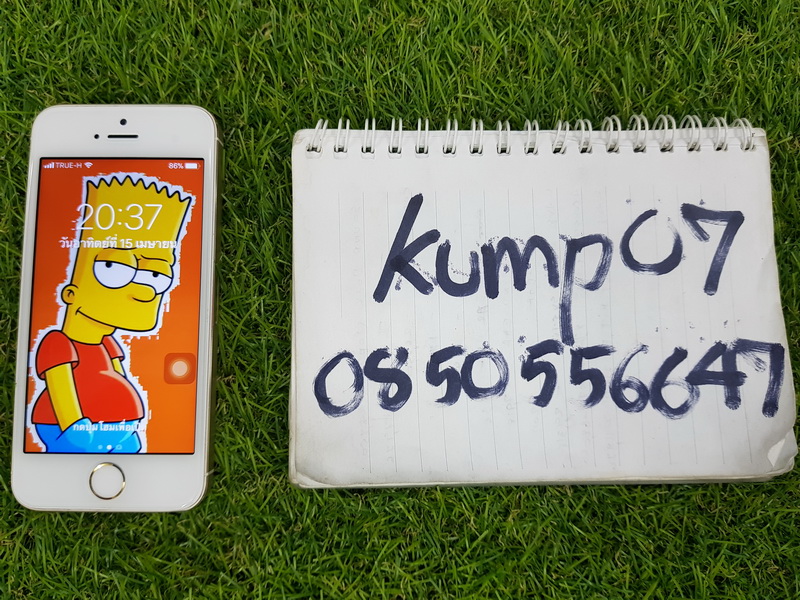 TRUE-H 86%
20:37
วันอาทิตย์ที่ 15 เมษายน
กดปุ่มโฮมเพื่อ
kump07
0850556647